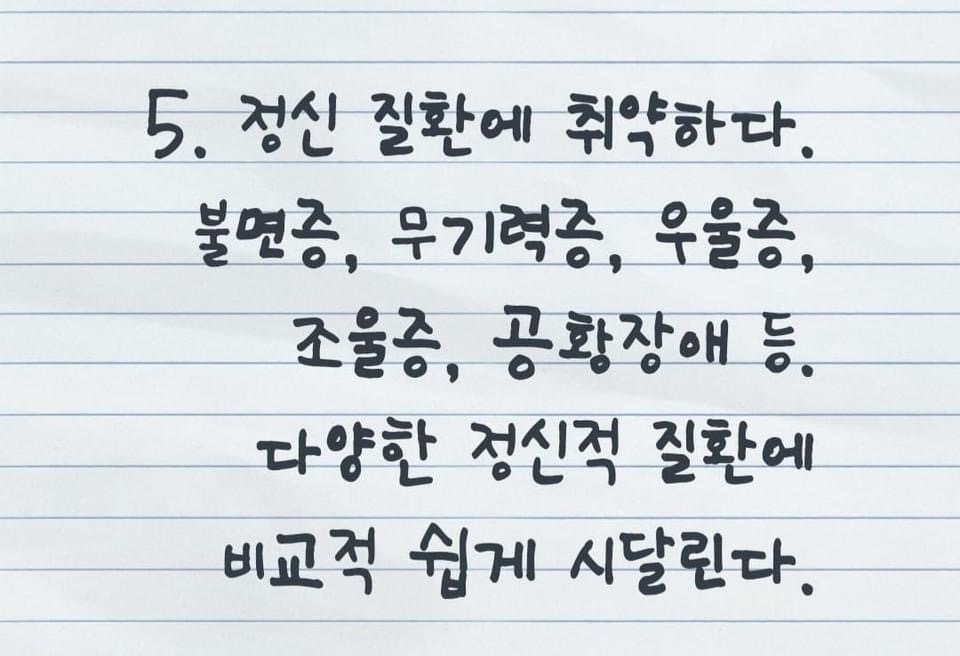 5. 정신 질환에 취약하다.
불면증, 무기력증, 우울증,
조울증, 공황장애 등.
다양한 정신적 질환에
비교적 쉽게 시달린다.